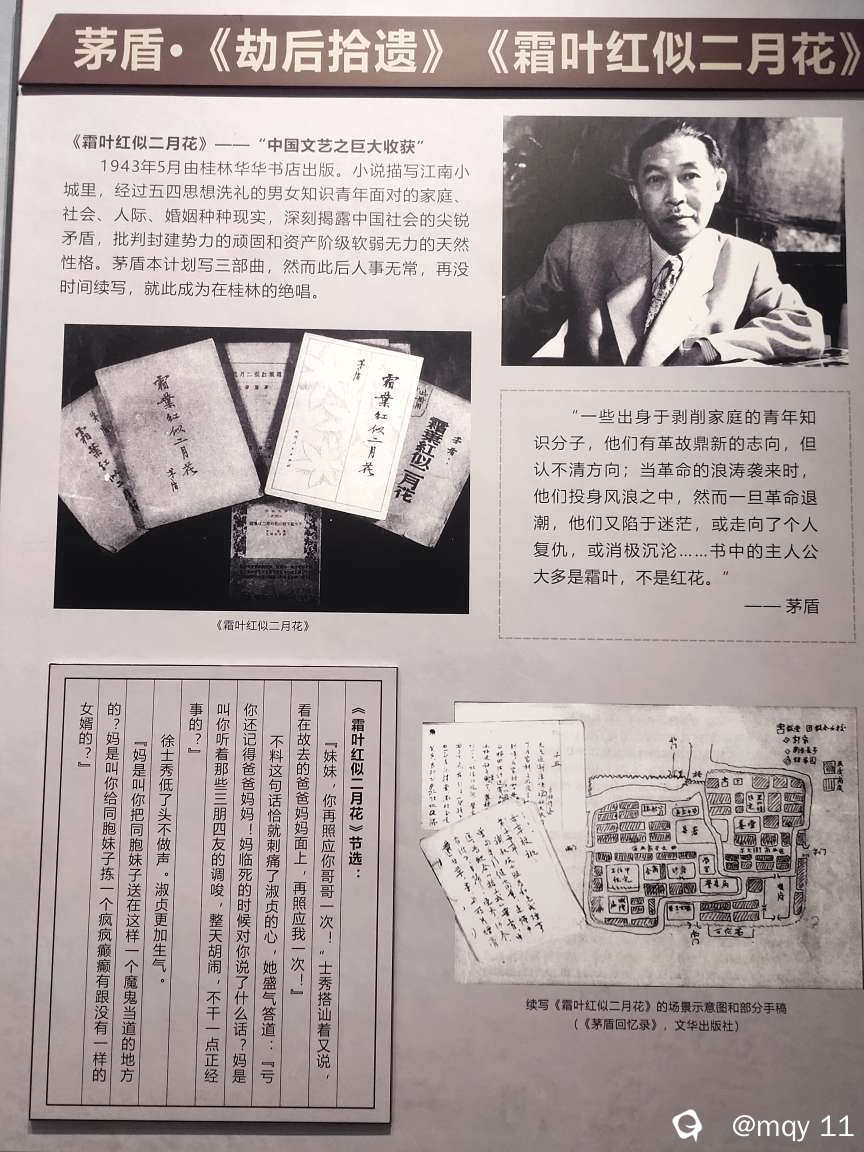 茅盾·《劫后拾遗》《霜叶红似二月花》
《霜叶红似二月花》——“中国文艺之巨大收获”
1943年5月由桂林华华书店出版。小说描写江南小
城里，经过五四思想洗礼的男女知识青年面对的家庭、
社会、人际、婚姻种种现实，深刻揭露中国社会的尖锐
矛盾，批判封建势力的顽固和资产阶级软弱无力的天然
性格。茅盾本计划写三部曲，然而此后人事无常，再没
时间续写，就此成为在桂林的绝唱。
霜葉紅似二月花
霜葉紅似二月花
茅盾
茅盾
霜葉紅似二月花
霜葉紅似二月花
《霜叶红似二月花》
“一些出身于剥削家庭的青年知
识分子，他们有革故鼎新的志向，但
认不清方向；当革命的浪涛袭来时，
他们投身风浪之中，然而一旦革命退
潮，他们又陷于迷茫，或走向了个人
复仇，或消极沉沦……书中的主人公
大多是霜叶，不是红花。”
—— 茅盾
《霜叶红似二月花》节选：
『妹妹，你再照应你哥哥一次！“士秀搭讪着又说，
看在故去的爸爸妈妈面上，再照应我一次！』
不料这句话恰就刺痛了淑贞的心，她盛气答道：『亏
你还记得爸爸妈妈！妈临死的时候对你说了什么话？妈是
叫你听着那些三朋四友的调唆，整天胡闹，不干一点正经
事的？』
徐士秀低了头不做声。淑贞更加生气。
『妈是叫你把同胞妹子送在这样一个魔鬼当道的地方
的？妈是叫你给同胞妹子拣一个疯疯癫癫有跟没有一样的
女婿的？』
续写《霜叶红似二月花》的场景示意图和部分手稿
（《茅盾回忆录》，文华出版社）
@mqy 11